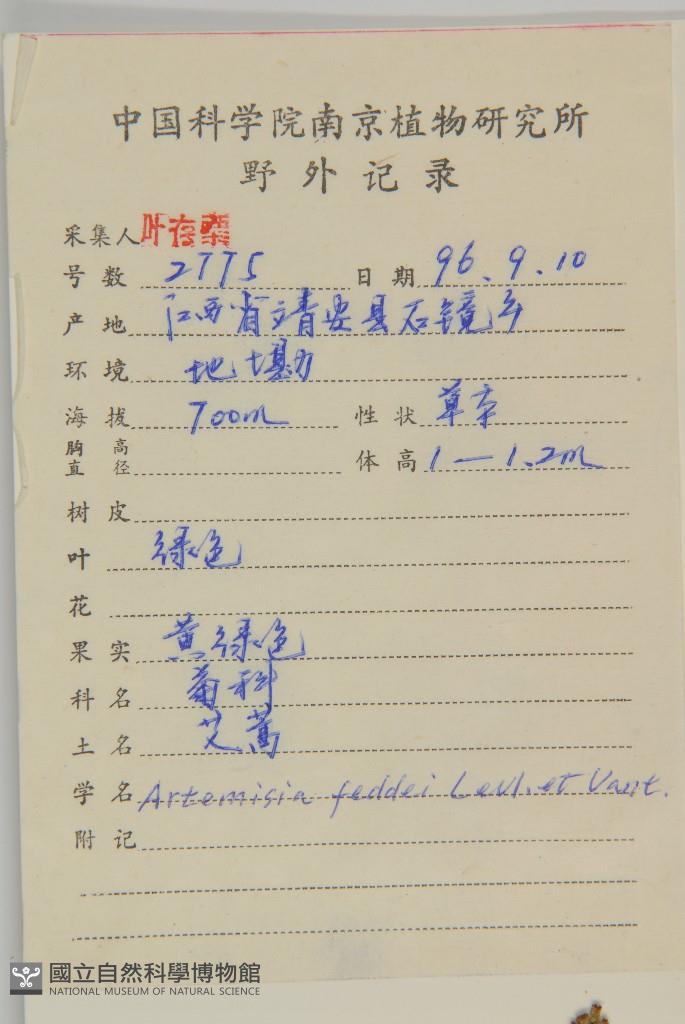 中国科学院南京植物研究所
野外记录
采集人 叶存粟
号数 2775 日期 96.9.10
产地 江西省靖安县石镜乡
环境 地墈
海拔 700m 性状 草本
胸高直径 体高 1—1.2m
树皮
叶 绿色
花
果实 黄绿色
科名 菊科
土名 艾蒿
学名 Artemisia feddei Levl. et Vant.
附记
國立自然科學博物館
NATIONAL MUSEUM OF NATURAL SCIENCE